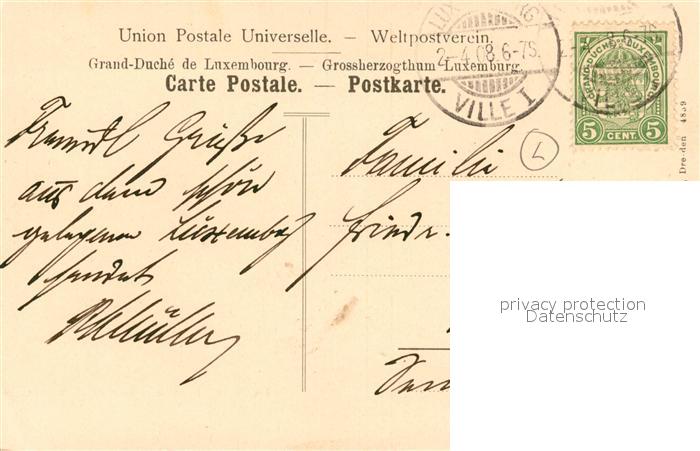 Union Postale Universelle. — Weltpostverein.
Grand-Duché de Luxembourg. — Grossherzogthum Luxemburg.
Carte Postale. — Postkarte.
2-4.08.6-7S.
VILLE I
GRAND-DUCHÉ DE LUXEMBOURG
5 CENT. 5
Dresden 4839
L
Freundl Grüße
aus dem schön
gelegenen Luxemburg
sendet
Müller
Familie
Friedr.
privacy protection
Datenschutz